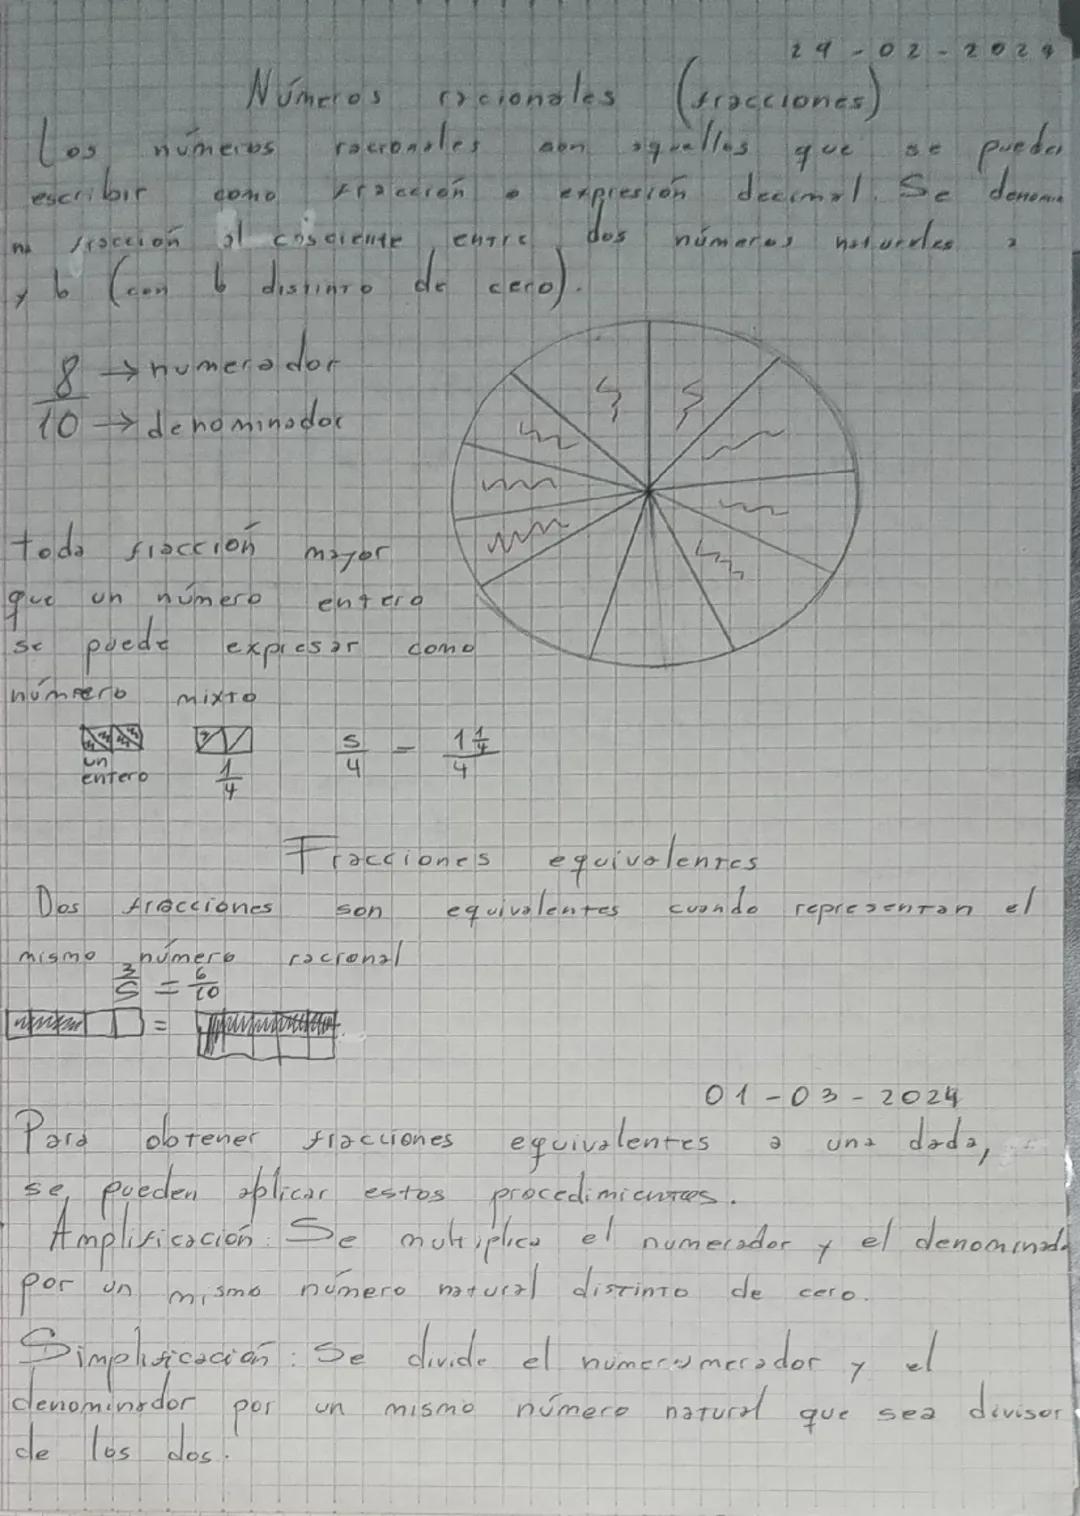 29-02-2024
Números racionales (fracciones)
Los números racionales son aquellos que se pueden
escribir como fracción o expresión decimal. Se denomi
na fracción al cosciente entre dos números naturales a
y b (con b distinto de cero).
8 → numerador
10 → denominador
toda fracción mayor
que un número entero
se puede expresar como
número mixto
un entero 1/4 5/4 - 1 1/4 / 4
Fracciones equivalentes
Dos fracciones son equivalentes cuando representan el
mismo número racional
3/5 = 6/10
=
01-03-2024
Para obtener fracciones equivalentes a una dada,
se pueden aplicar estos procedimientos.
Amplificación: Se multiplica el numerador y el denominado
por un mismo número natural distinto de cero.
Simplificación: Se divide el numerumerador y el
denominador por un mismo número natural que sea divisor
de los dos.